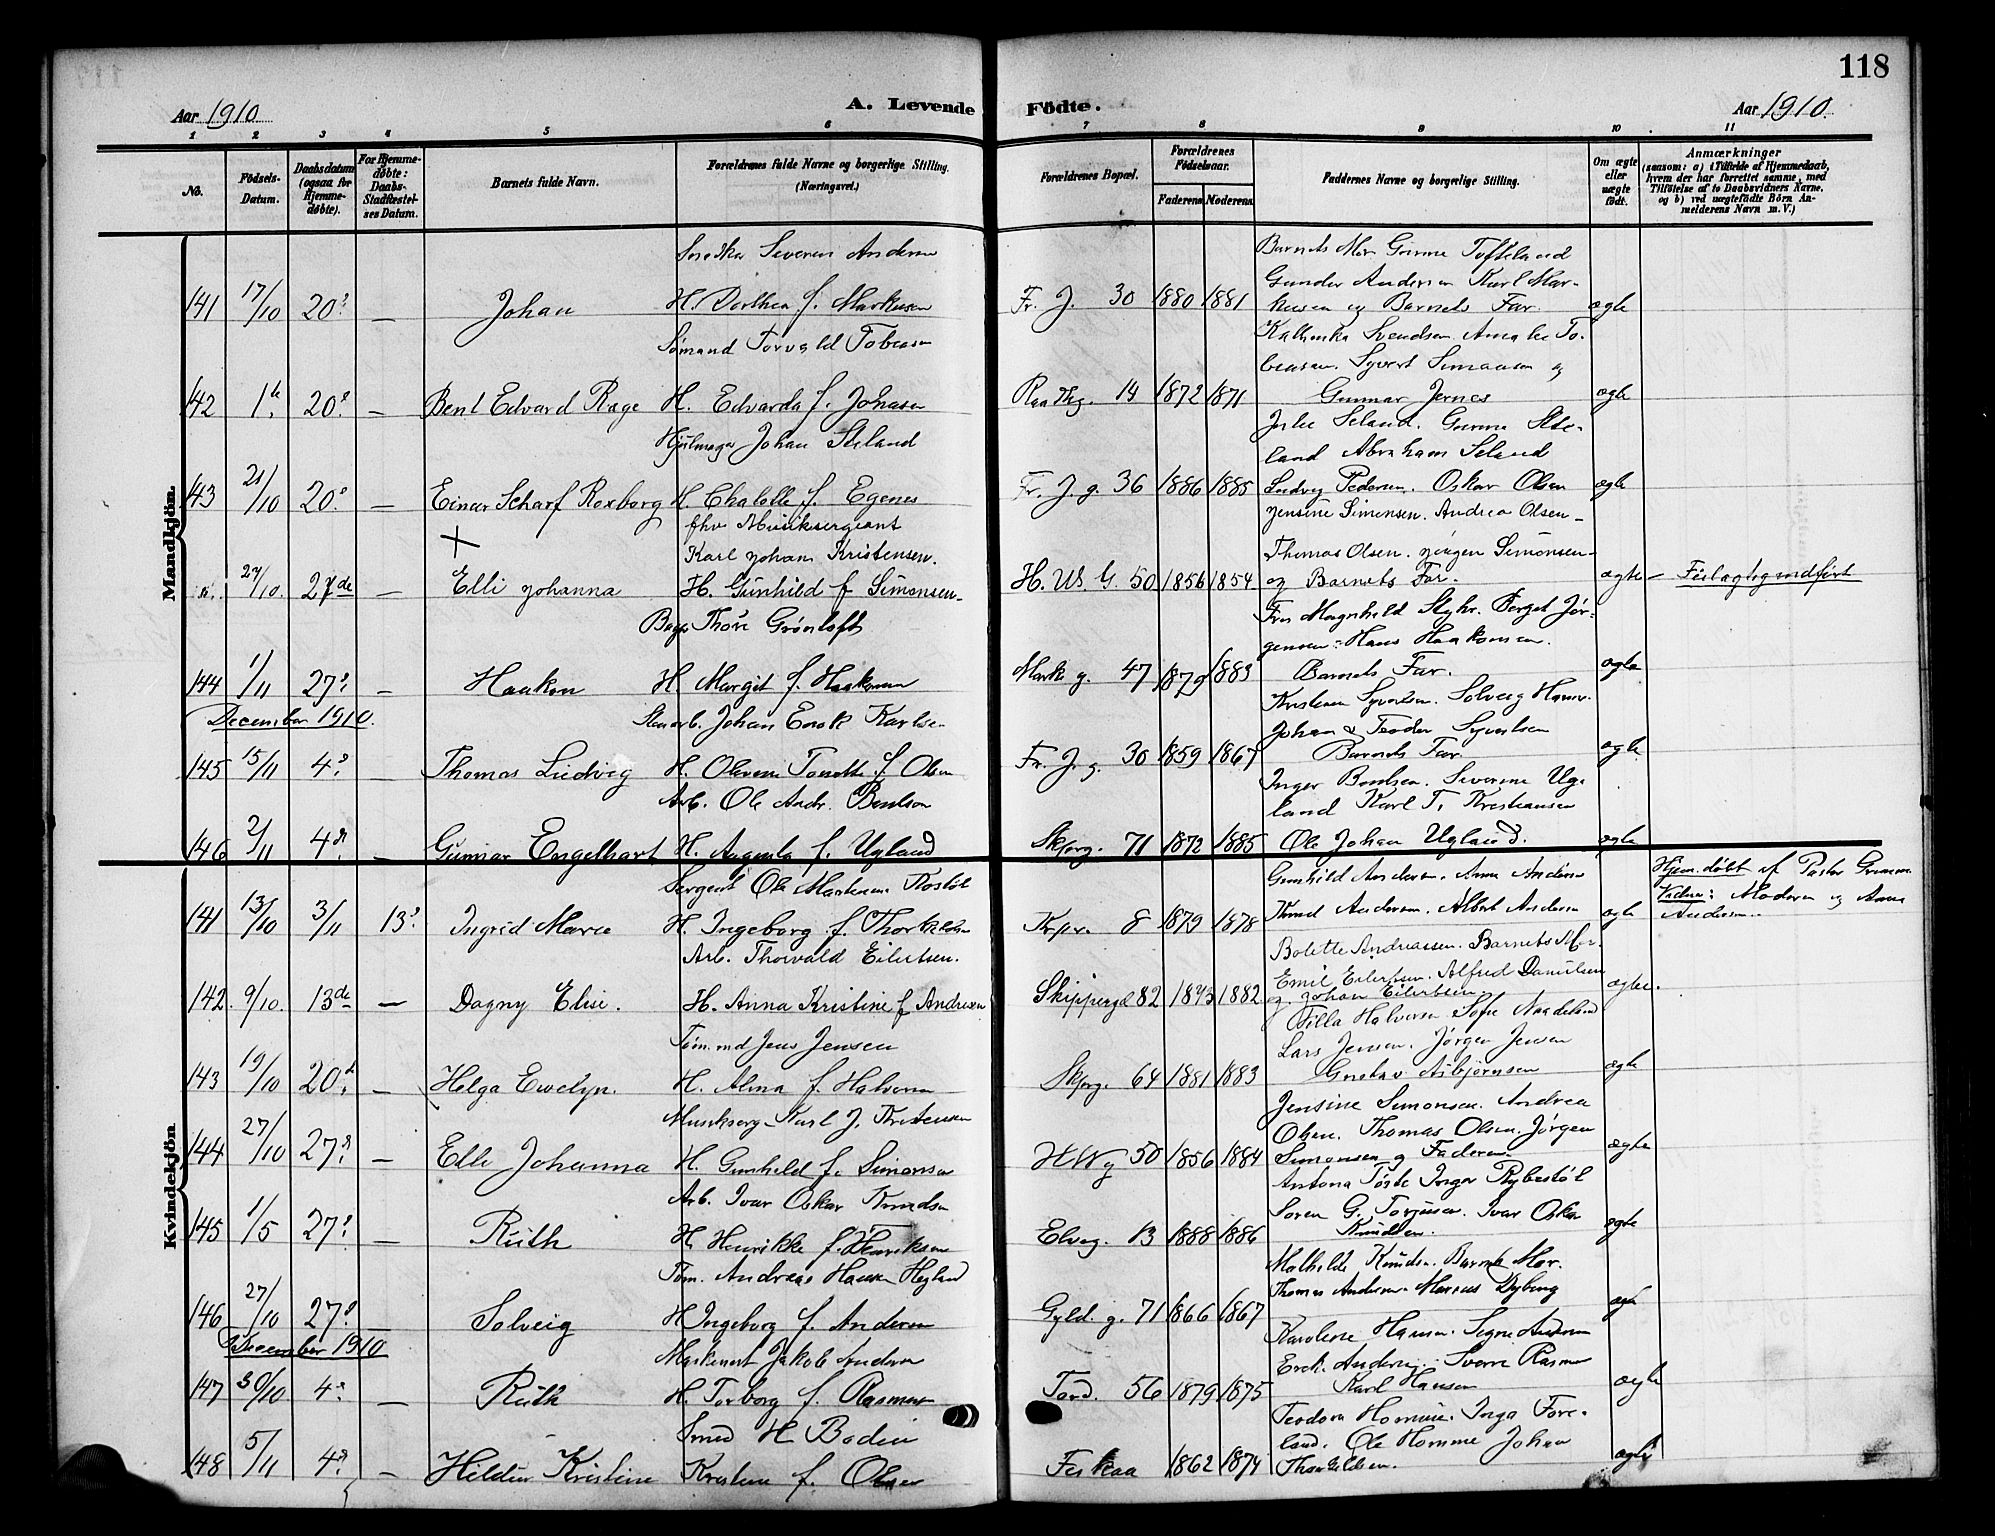 118
Aar 1910
A. Levende Födte.
Aar 1910.
1 2 3 4 5 6 7 8 9 10 11
No.
Födsels-Datum.
Daabsdatum (ogsaa for Hjemme-døbte).
For Hjemme-døbte: Daabs-Stadfæstel-ses Datum.
Barnets fulde Navn.
Forældrenes fulde Navne og borgerlige Stilling. (Næringsvei.)
Forældrenes Bopæl.
Forældrenes Födselsaar.
Faderens Moderens
Faddernes Navne og borgerlige Stilling.
Om ægte eller uægte født.
Anmærkninger
(saasom: a) i Tilfælde af Hjemmedaab, hvem der har forrettet samme, med Tilföielse af to Daabsvidners Navne, og b) ved uægtefødte Börn An-melderens Navn m. V.)
Mandkjön.
Severin Andersen
Barnets Mor Gunne Tofteland
Gunder Andersen Karl Mar-
141 17/10 20d — Johan H. Dorthea f. Markusen Fr. J. 30 1880 1881 kusen og Barnets Far. ægte
Sømand Torvald Tobiasen
Kathinka Svendsen Amalie To-
biasen. Syvert Simonsen og
142 20d — Bent Edvard Rage H. Edvarda f. Johnsen 14 1872 1871 Gunnar Jernes ægte
Hjulmager Johan Seland
Julie Seland. Gunne Sele-
land Abraham Seland
143 21/10 20d — Einar Scharf Roxborg H. Chalotte f. Egenes Fr. J. g. 36 1886 1885 Ludvig Pedersen. Oskar Olsen ægte
fhv Musiksergeant
Jensine Simensen. Andrea Olsen
Karl Johan Kristensen.
Thomas Olsen. Jørgen Simonsen
27/10. 27de — Elli Johanna H. Gunhild f Simonsen H. W. G. 50 1856 1854 og Barnets Far. ægte — Feilagtig indført
Thore Grønloft
Fru Magnhild Styhr. Berget Jør-
gensen. Hans Haakonsen.
144 1/11 27d — Haakon H. Margit f. Haakonsen Mark g. 47 1879 1883 Barnets Far. ægte
December 1910.
Stenarb. Johan Enok Karlsen
Kristense Syvertsen. Solveig Hansen
Johan & Teodor Syvertsen
145 15/11 4d — Thomas Ludvig H. Olevine Tonette f Olsen Fr. J. g. 30 1859 1867 Barnets Far. ægte
Arb. Ole Andr. Bentsen
Inger Bentsen. Severine Ug-
land Karl T. Kristiansen
146 2/11 4d — Gunnar Engelhart H. Augusta f. Ugland Skprg. 71 1872 1885 Ole Johan Ugland. ægte
Kvindekjön
Sergent Ole Martinius
Gunhild Andersen. Anna Andersen
Hjem. døbt af Pastor
141 13/10 3/11 13d Ingrid Marie H. Ingeborg f. Thorkildsen Krpr. 8 1879 1878 Knud Andersen. Albert Andersen ægte
Moderen og Anna Andersen.
Arb. Thorvald Eilertsen.
Bolette Andreassen. Barnets Mor.
Emil Eilertsen. Alfred Danielsen
142. 9/10. 13de — Dagny Elise. H. Anna Kristine f Andresen Skipperg 82 1873 1882 og Johan Eilertsen. ægte.
Tøm. md Jens Jensen
Tilla Halvorsen Sofie Naadeland
Lars Jensen. Jørgen Jensen
143 19/10 20d — Helga Ewelyn. H. Alma f. Halvorsen Skprg. 64 1881 1883 Gustav Asbjørnsen ægte
Musikserg. Karl J. Kristensen
Jensine Simonsen. Andrea
Olsen. Thomas Olsen. Jørgen
144 27/10 27d — Elli Johanna H. Gunhild f. Simonsen H W g 50 1856 1884 Simonsen og Faderen. ægte
Arb. Ivar Oskar Knudsen
Antona Tøste Inger Rybestöl
Soren G. Torjusen. Ivar Oskar
145 1/5 27d Ruth H. Henrikke f. Henriksen Elveg. 13 1888 1886 Knudsen. ægte
Tøm. Andreas Hansen Hegland
Mathilde Knudsen. Barnets Mor.
Thomas Andersen. Marius Dyberg
146 27/10 27d Solveig H Ingeborg f. Andersen Gyld. g. 71 1866 1867 ægte
December 1910
Maskinist Jakob Andersen
Karoline Hansen. Signe Andersen
Erik Andersen. Sverre Rasmussen
147 30/10 4d — Ruth H. Torborg f. Rasmussen Tord. 56 1879 1875 Karl Hansen ægte
Smed H Bodin
Teodora Homme. Inga Fore-
land. Ole Homme Johan
148 5/11 4d — Hildur Kristine Kristine f. Olsen Feskaa 1862 1874 Thorkildsen. ægte